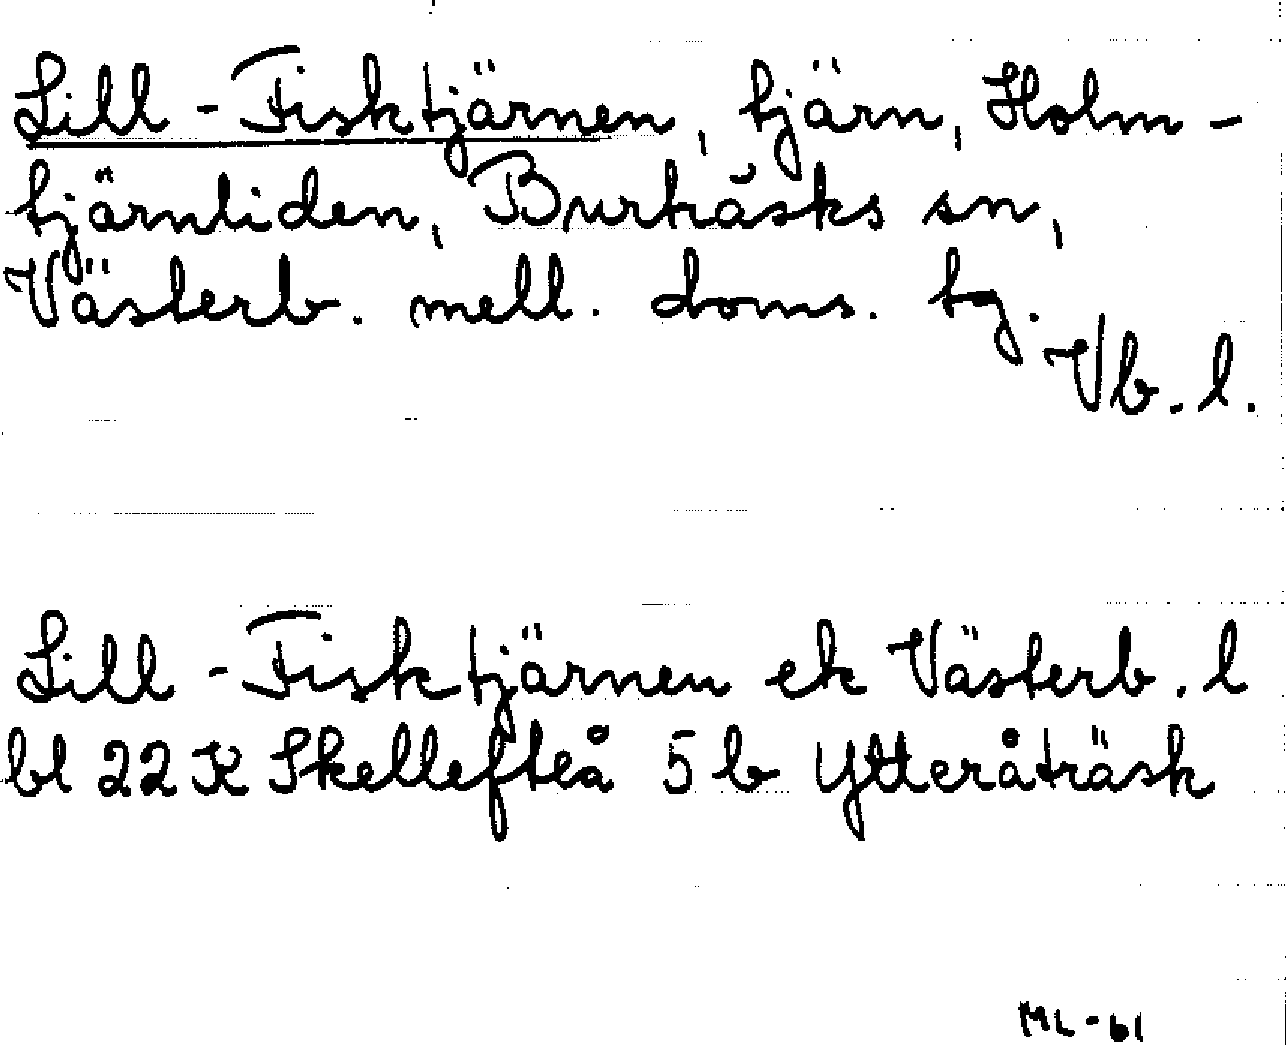 Lill-Fisktjärnen, tjärn, Holm-
tjärnliden, Burträsks sn,
Västerb. mell. doms. tg.
Vb. l.
Lill-Fisktjärnen ek Västerb. l
bl 22 K Skellefteå 5 b Ytteråträsk
ML-61